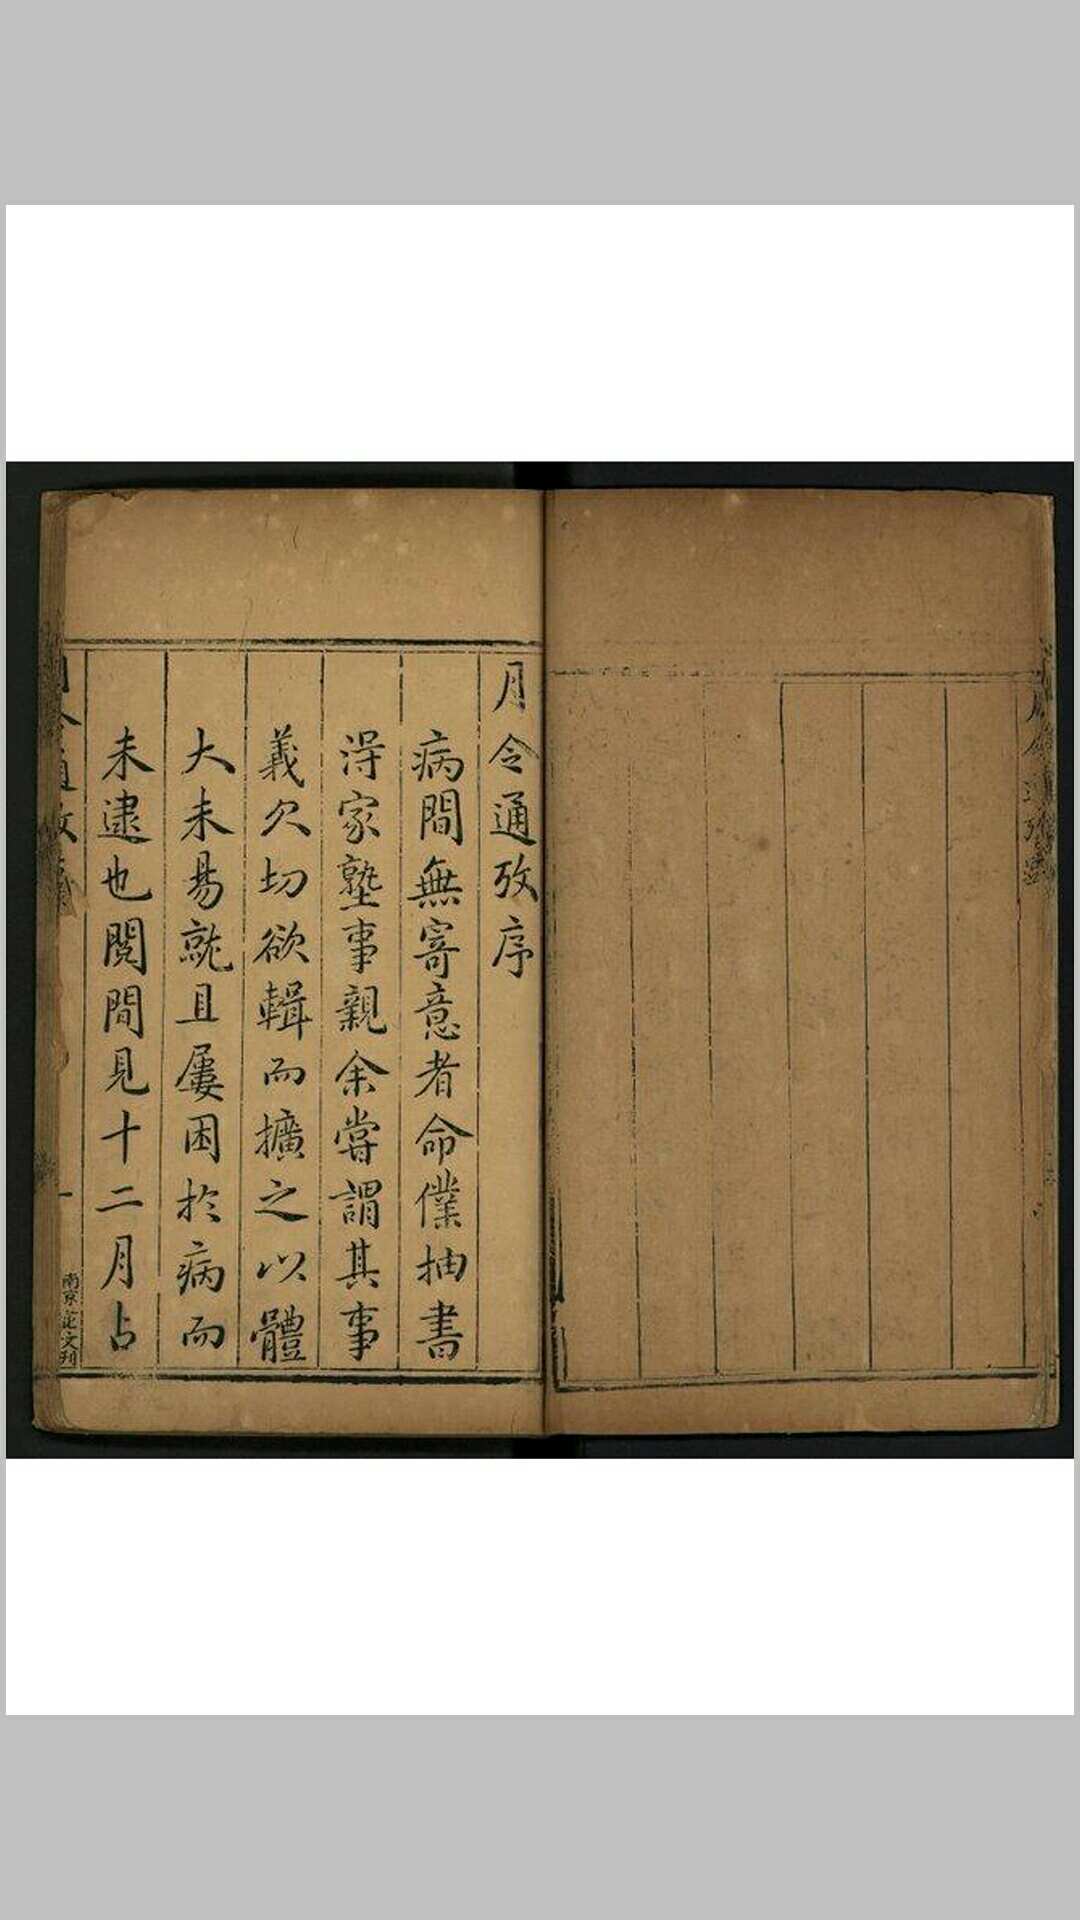 月令通攷序
病間無寄意者命僕抽書
淂家塾事親余甞謂其事
義欠切欲輯而擴之以體
大未易就且屢困於病而
未逮也閱間見十二月占
南京
文刊